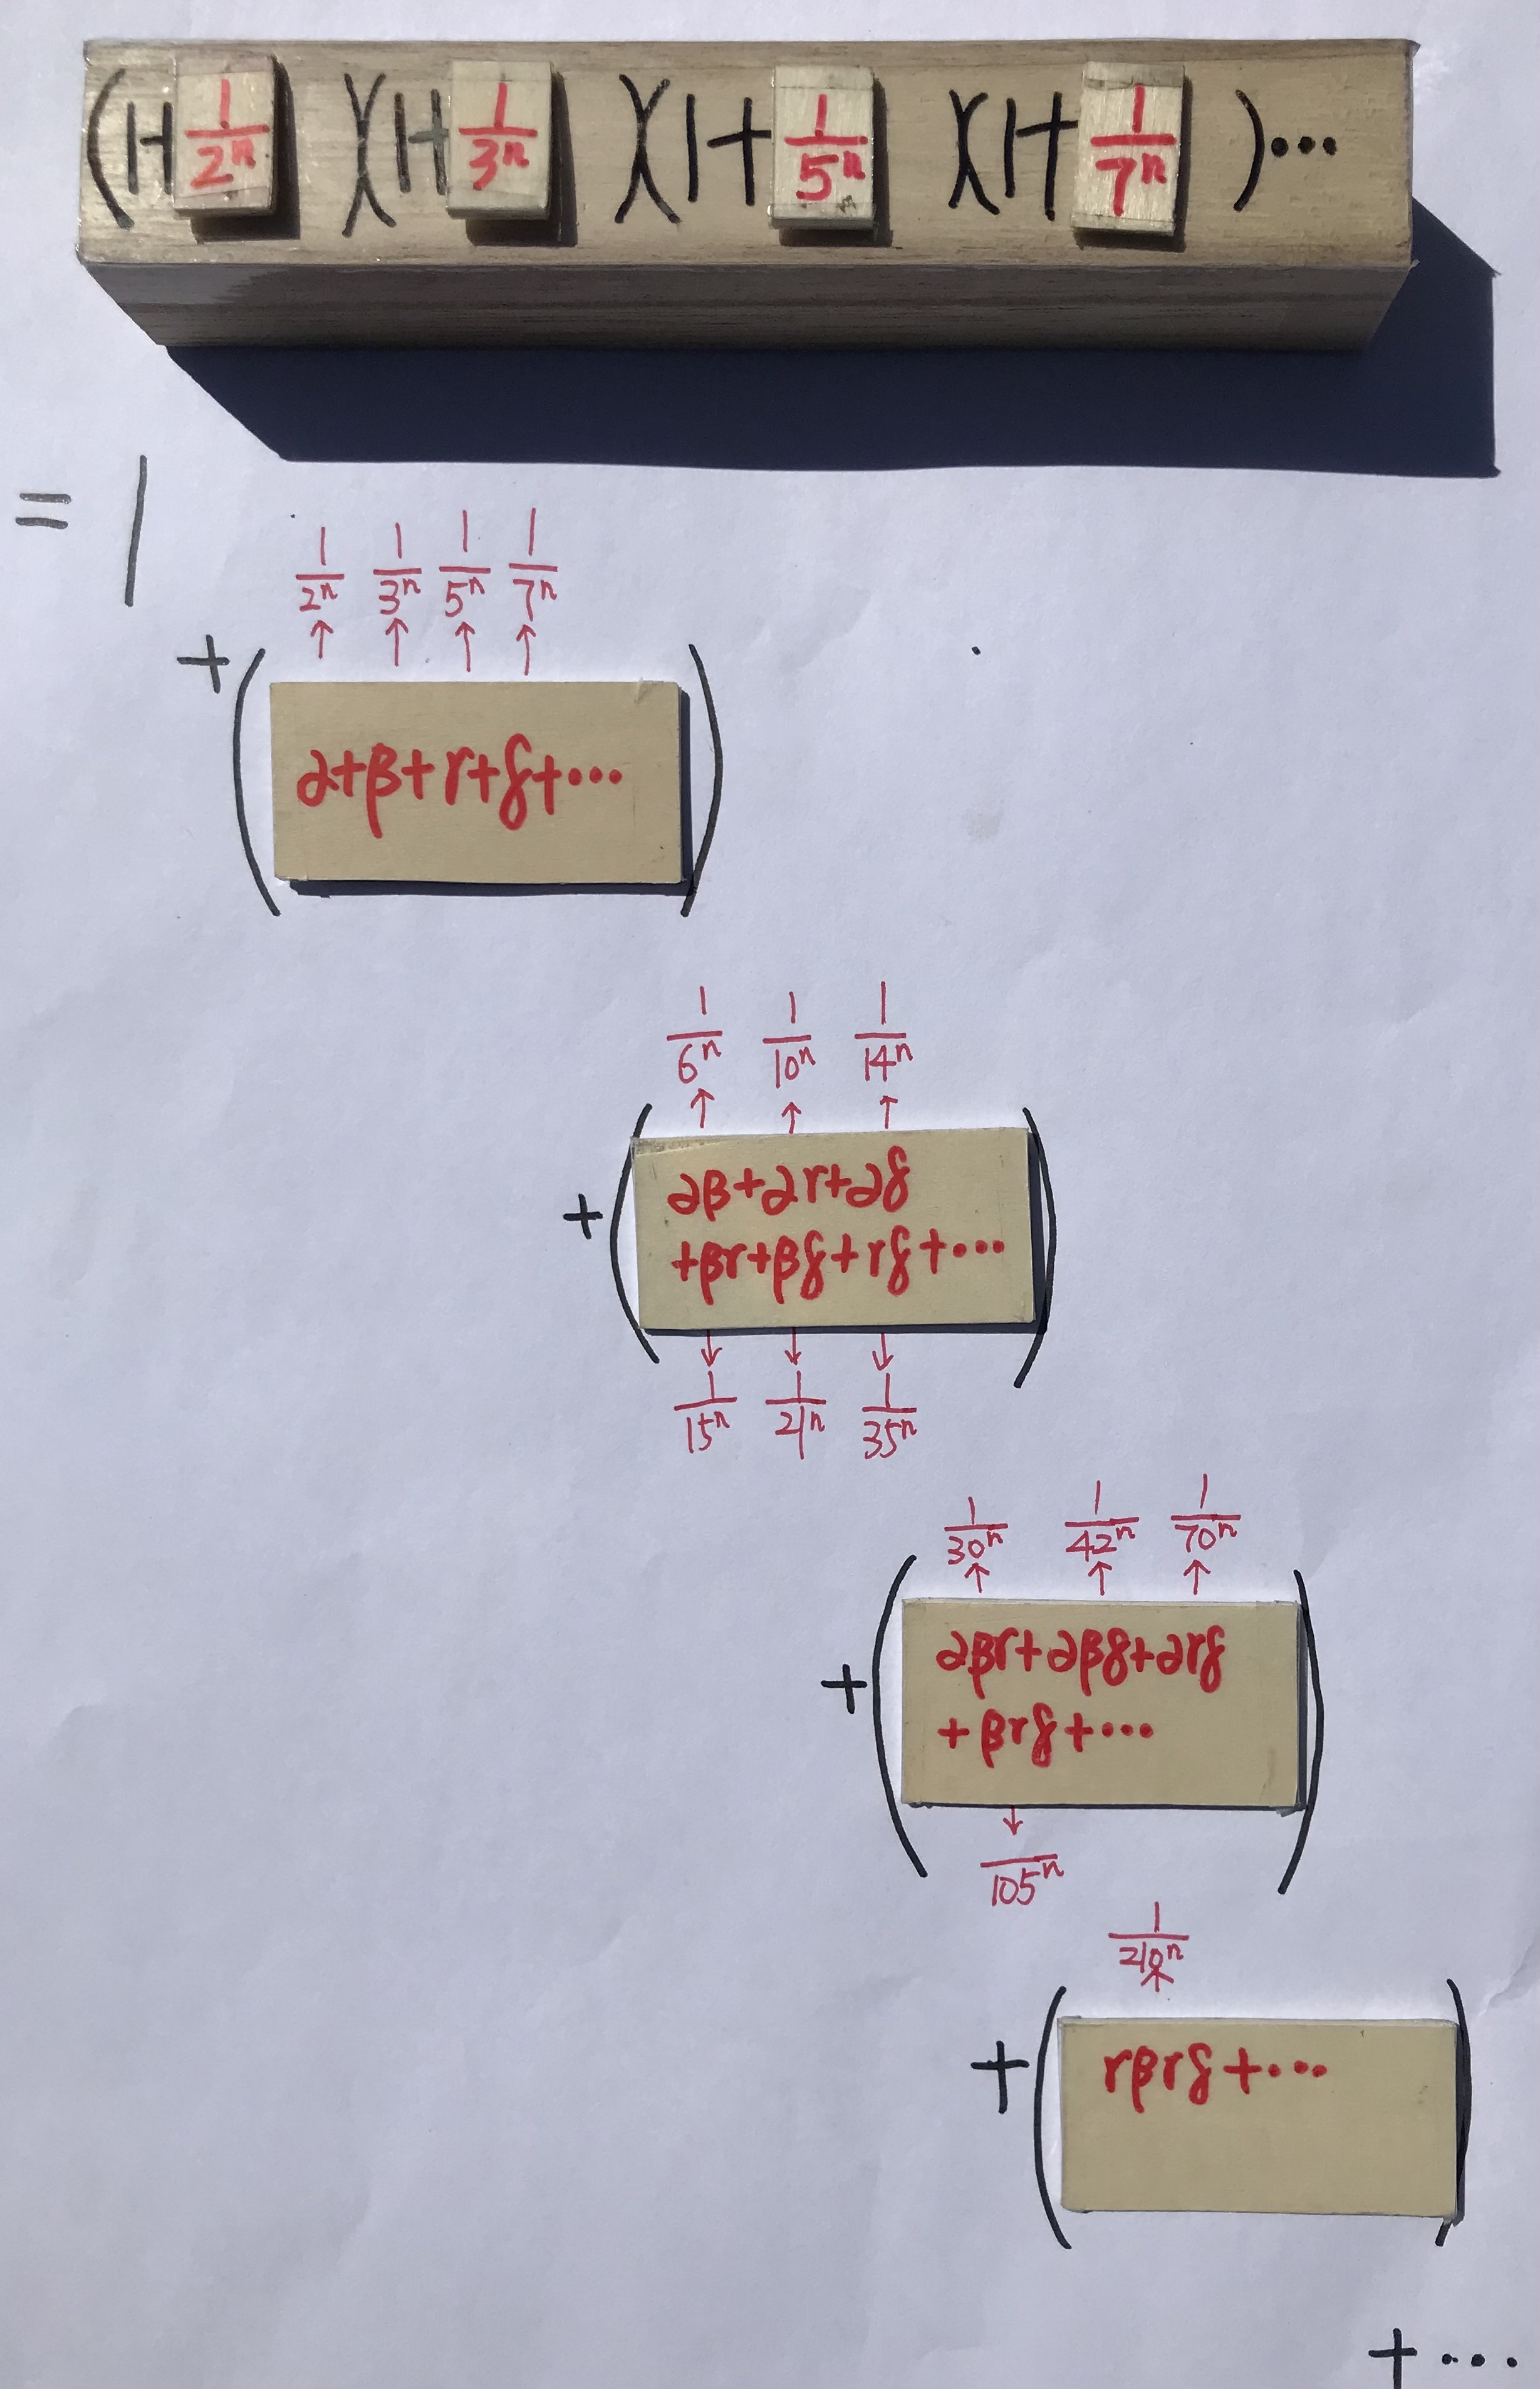 (1+ 1/2ⁿ )(1+ 1/3ⁿ )(1+ 1/5ⁿ )(1+ 1/7ⁿ )⋯
= 1
1/2ⁿ 1/3ⁿ 1/5ⁿ 1/7ⁿ
↑ ↑ ↑ ↑
+( α+β+γ+δ+⋯ )
1/6ⁿ 1/10ⁿ 1/14ⁿ
↑ ↑ ↑
+( αβ+αγ+αδ
+βγ+βδ+γδ+⋯ )
↓ ↓ ↓
1/15ⁿ 1/21ⁿ 1/35ⁿ
1/30ⁿ 1/42ⁿ 1/70ⁿ
↑ ↑ ↑
+( αβγ+αβδ+αγδ
+βγδ+⋯ )
↓
/105ⁿ
1/210ⁿ
↑
+( γβγδ+⋯ )
+⋯